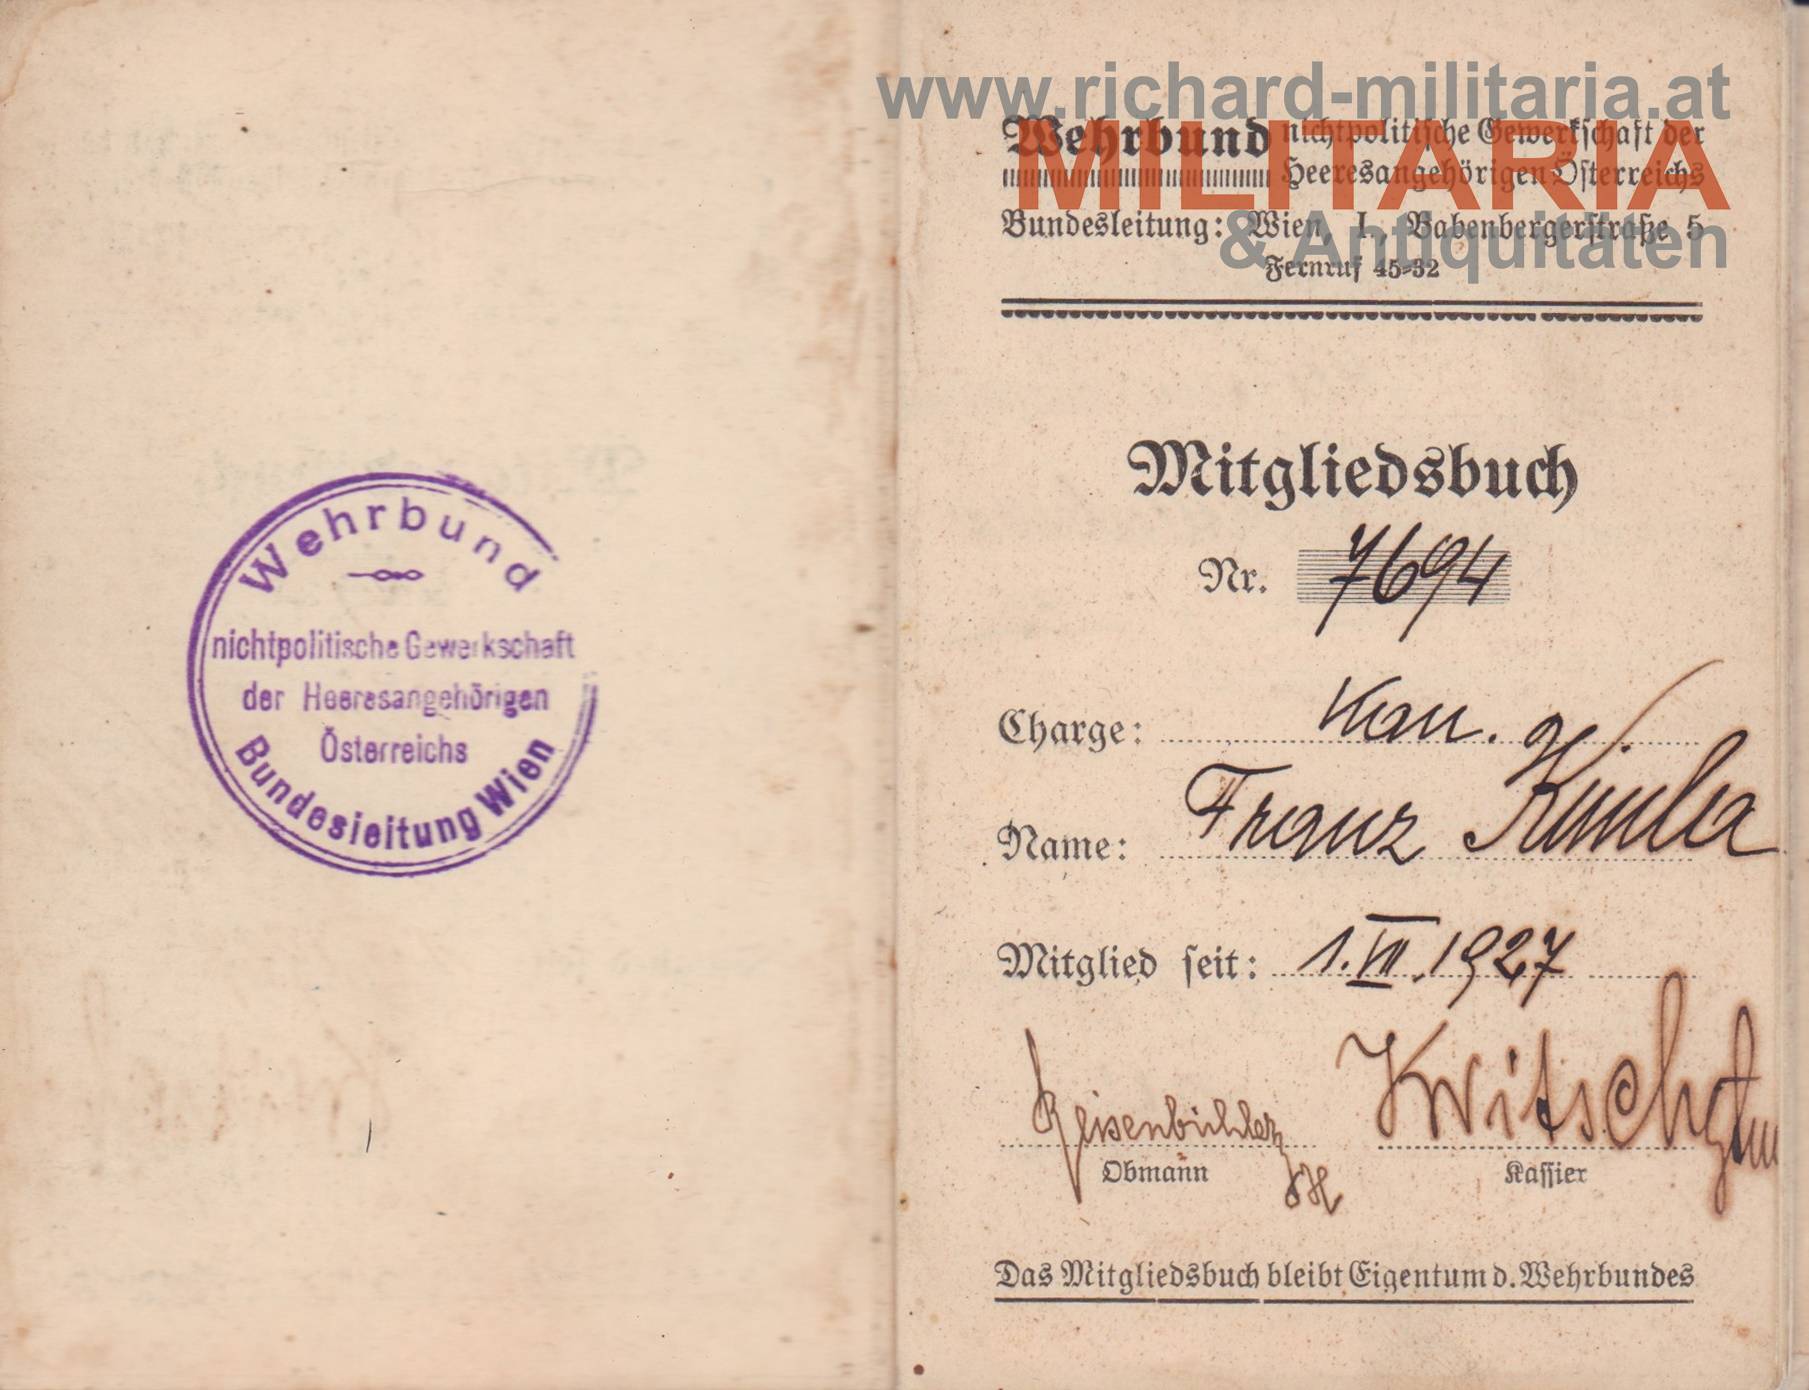 Wehrbund
nichtpolitische Gewerkschaft
der Heeresangehörigen
Österreichs
Bundesleitung Wien
www.richard-militaria.at
MILITARIA
& Antiquitäten
Wehrbund nichtpolitische Gewerkschaft der
Heeresangehörigen Österreichs
Bundesleitung: Wien, I., Babenbergerstraße 5
Fernruf 45-32
Mitgliedsbuch
Nr. 7694
Charge: Kan.
Name: Franz
Mitglied seit: 1.VII.1927
Obmann
Kassier
Das Mitgliedsbuch bleibt Eigentum d. Wehrbundes